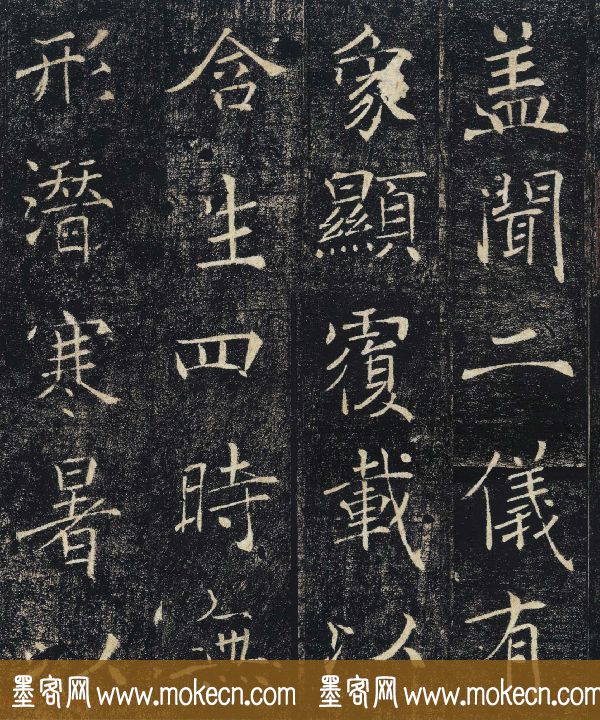 盖聞二儀有
象顯覆載以
含生四時無
形潛寒暑以
墨客网 www.mokecn.com 墨客网 www.mokecn.com